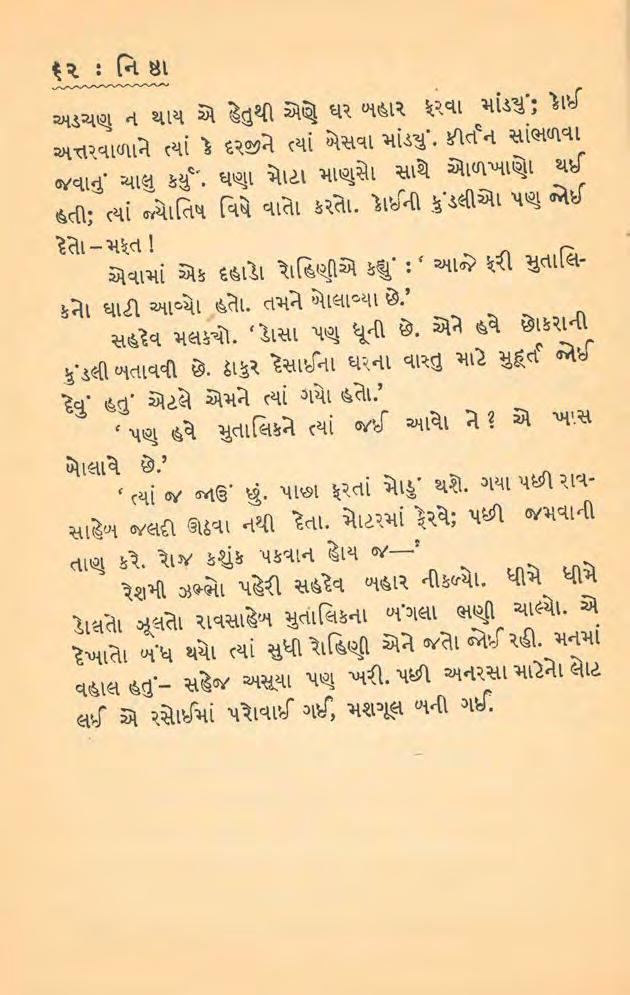 ૬૨ : નિષ્ઠા
અડચણ ન થાય એ હેતુથી એણે ઘર બહાર ફરવા માંડ્યું; કોઈ
અત્તરવાળાને ત્યાં કે દરજીને ત્યાં બેસવા માંડ્યું. કીર્તન સાંભળવા
જવાનું ચાલુ કર્યું. ઘણા મોટા માણસો સાથે ઓળખાણો થઈ
હતી; ત્યાં જ્યોતિષ વિષે વાતો કરતો. કોઈની કુંડલીઓ પણ જોઈ
દેતો – મફત !
એવામાં એક દહાડો રોહિણીએ કહ્યું : ‘ આજે ફરી મુતાલિ-
કનો ઘાટી આવ્યો હતો. તમને બોલાવ્યા છે.’
સહદેવ મલક્યો. ‘ડોસા પણ ધૂની છે. એને હવે છોકરાની
કુંડલી બતાવવી છે. ઠાકુર દેસાઈના ઘરના વાસ્તુ માટે મુહૂર્ત જોઈ
દેવું હતું એટલે એમને ત્યાં ગયો હતો.’
‘ પણ હવે મુતાલિકને ત્યાં જઈ આવો ને ? એ ખાસ
બોલાવે છે.’
‘ ત્યાં જ જાઉં છું. પાછા ફરતાં મોડું થશે. ગયા પછી રાવ-
સાહેબ જલદી ઊઠવા નથી દેતા. મોટરમાં ફેરવે; પછી જમવાની
તાણ કરે. રોજ કશુંક પકવાન હોય જ—’
રેશમી ઝભ્ભો પહેરી સહદેવ બહાર નીકળ્યો. ધીમે ધીમે
ડોલતો ઝૂલતો રાવસાહેબ મુતાલિકના બંગલા ભણી ચાલ્યો. એ
દેખાતો બંધ થયો ત્યાં સુધી રોહિણી એને જતો જોઈ રહી. મનમાં
વહાલ હતું – સહેજ અસૂયા પણ ખરી. પછી અનરસા માટેનો લોટ
લઈ એ રસોઈમાં પરોવાઈ ગઈ, મશગૂલ બની ગઈ.